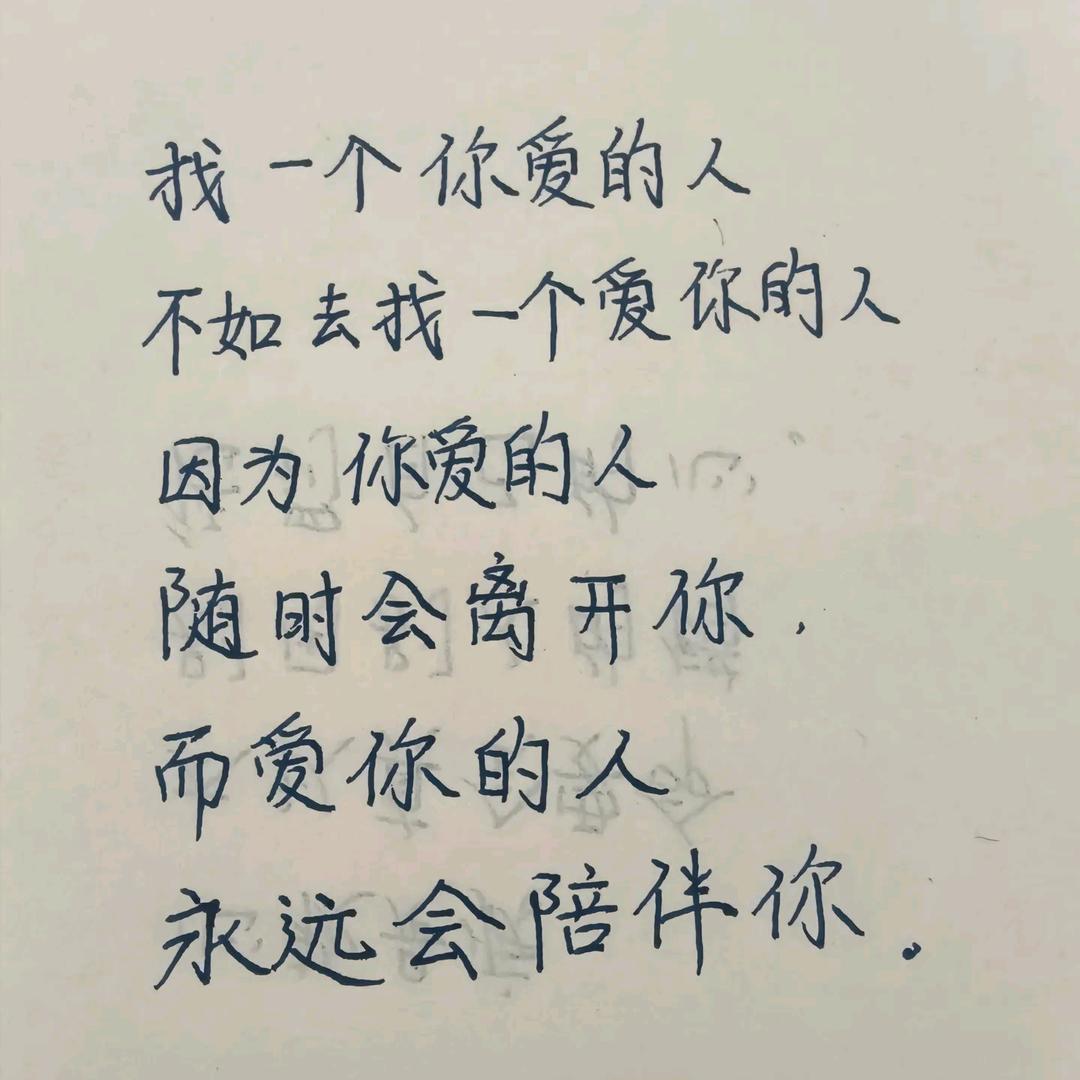 找一个你爱的人
不如去找一个爱你的人
因为你爱的人
随时会离开你，
而爱你的人
永远会陪伴你。